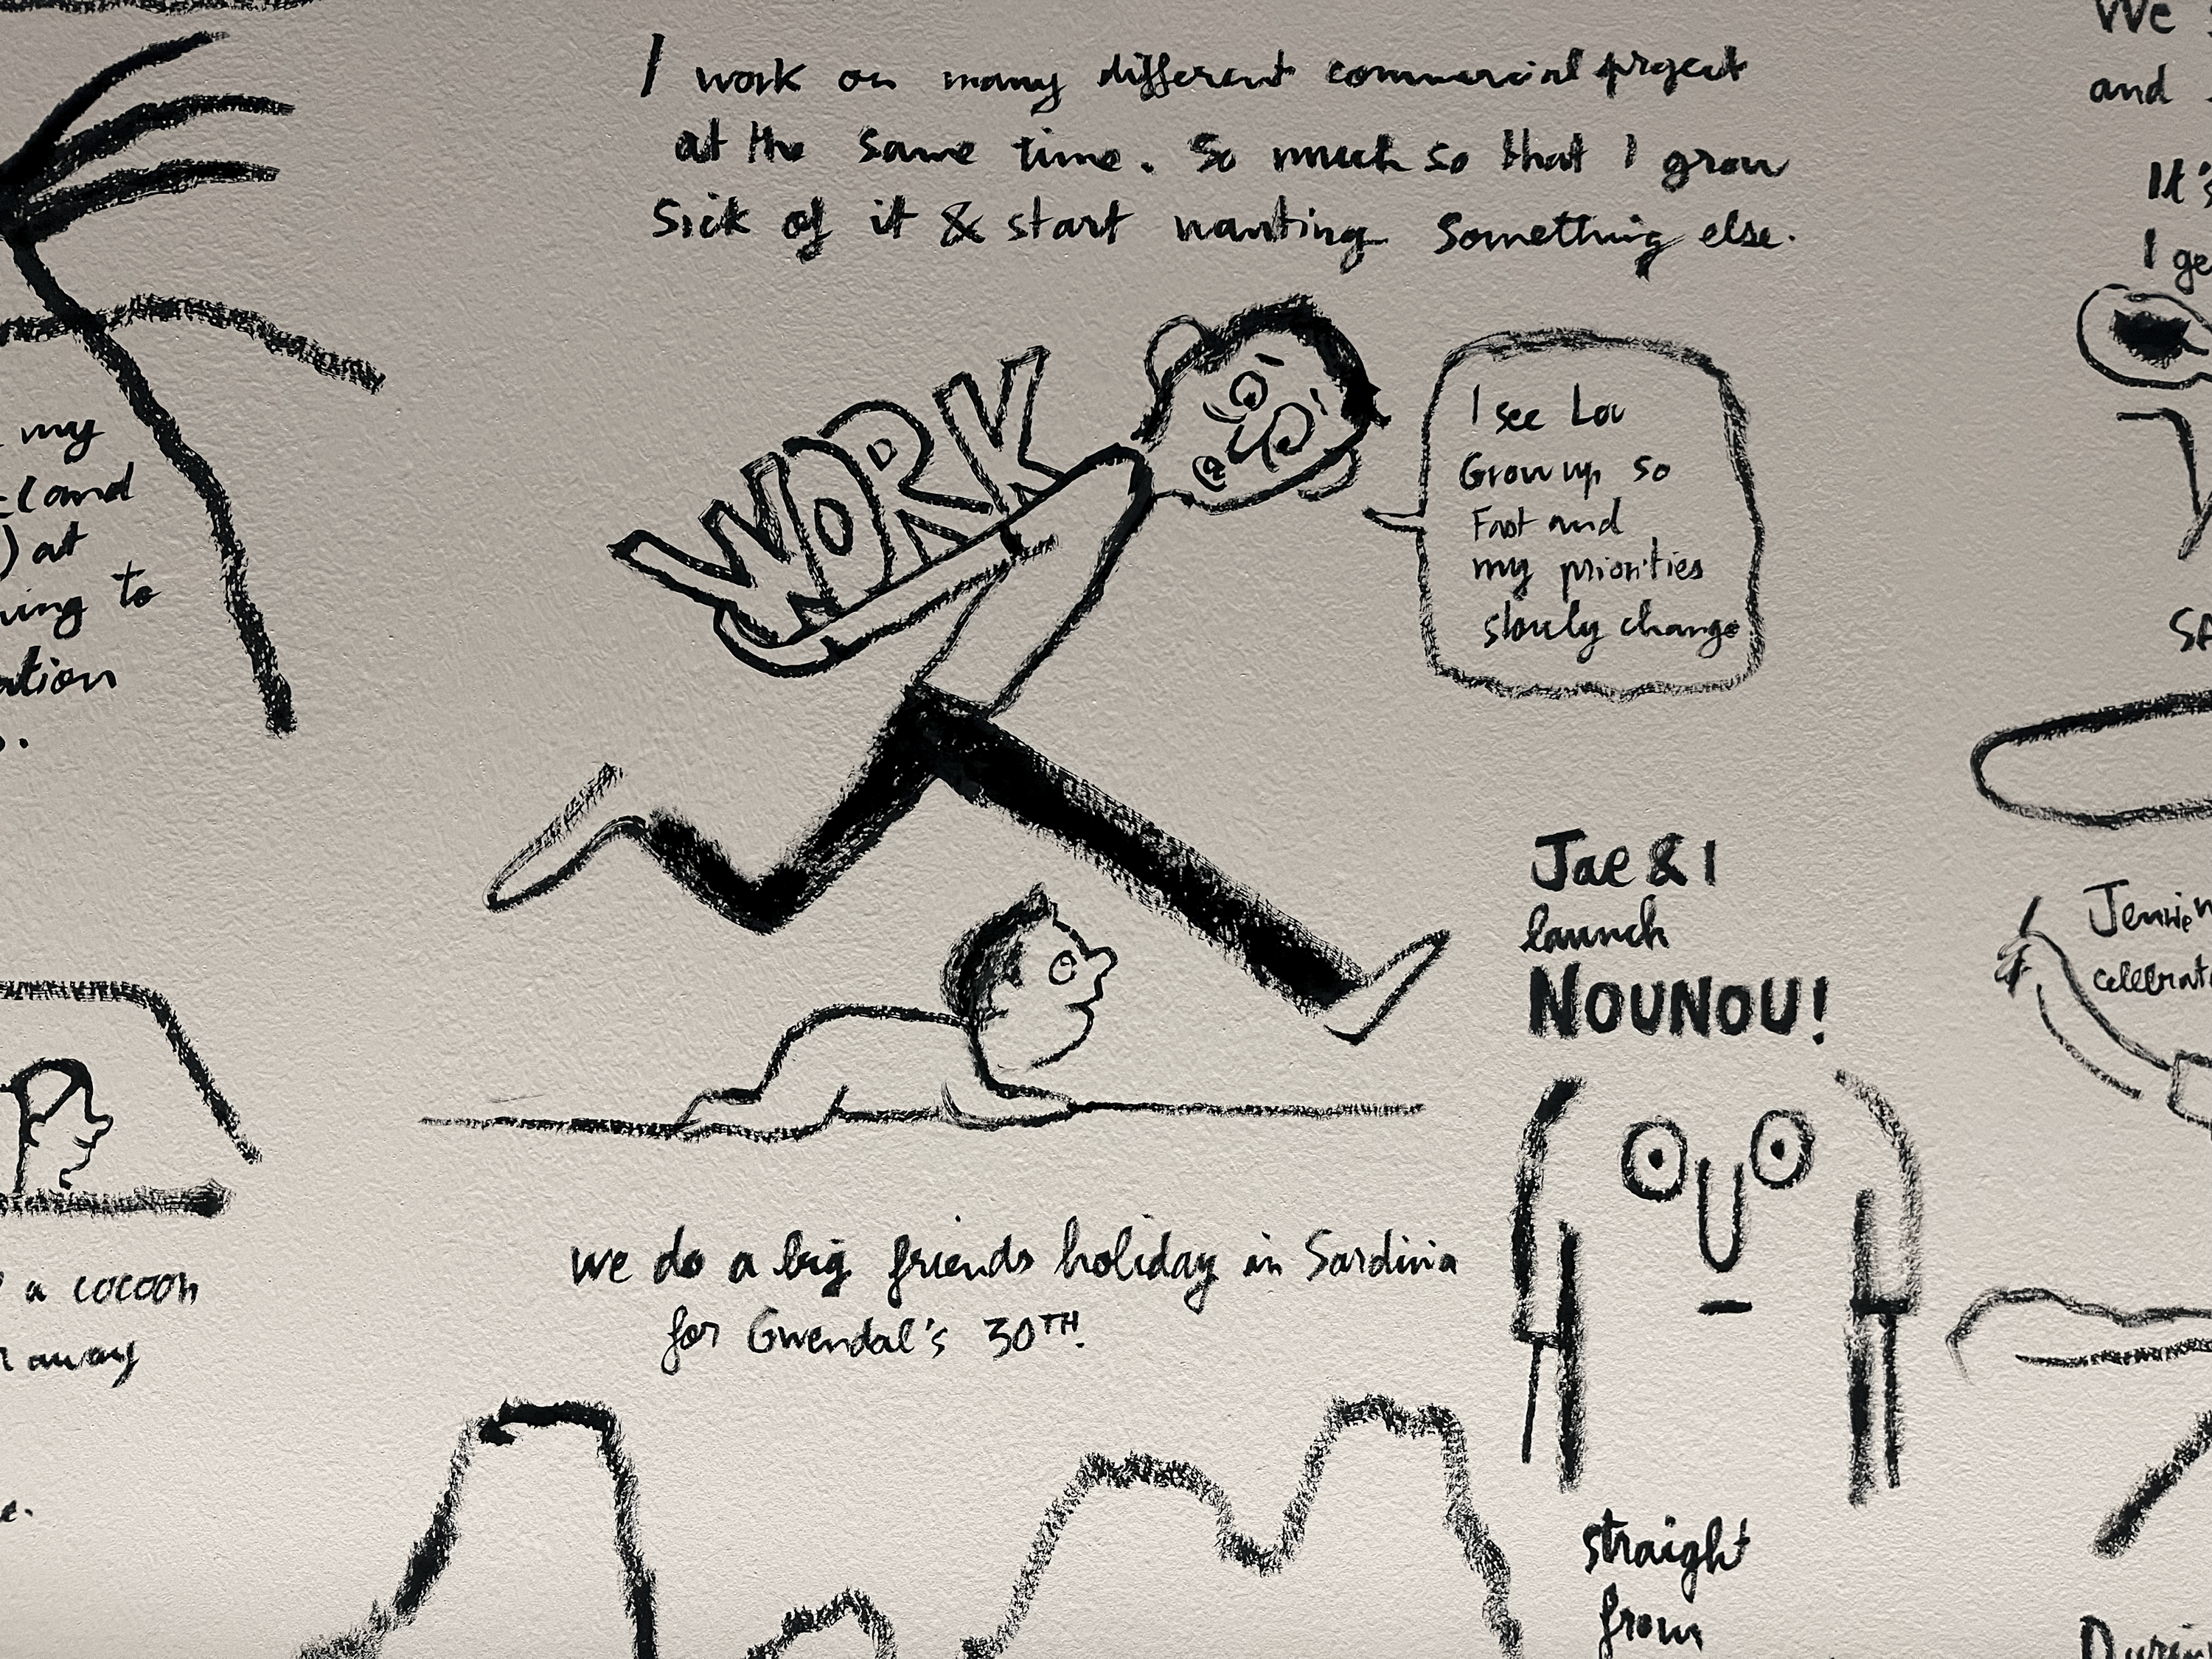 I work on many different commercial project
at the same time. So much so that I grow
sick of it & start wanting something else.
WORK
I see Lou
Grow up so
Fast and
my priorities
slowly change
Jae & I
launch
NOUNOU!
we do a big friends holiday in Sardinia
for Gwendal's 30TH.
straight
from
my
and
) at
to
.
a cocoon
away
e.
We
and
It's
I ge
Jennie
celebrat